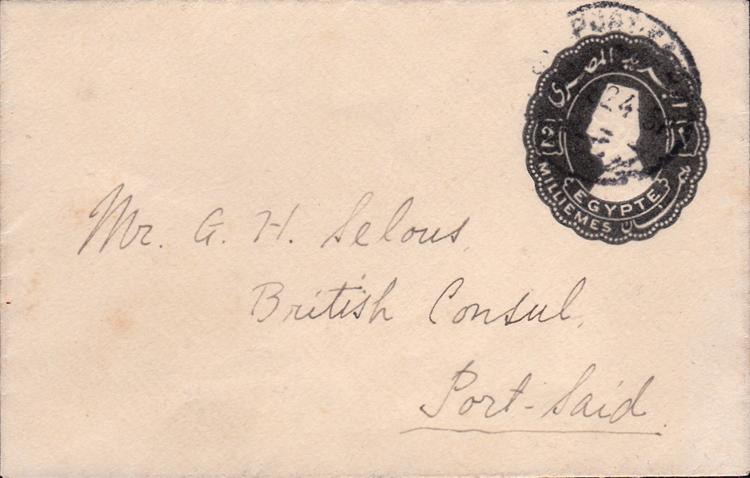 البريد المصرى
2
MILLIEMES
EGYPTE
24
Mr. G. H. Selous,
British Consul,
Port-Said.